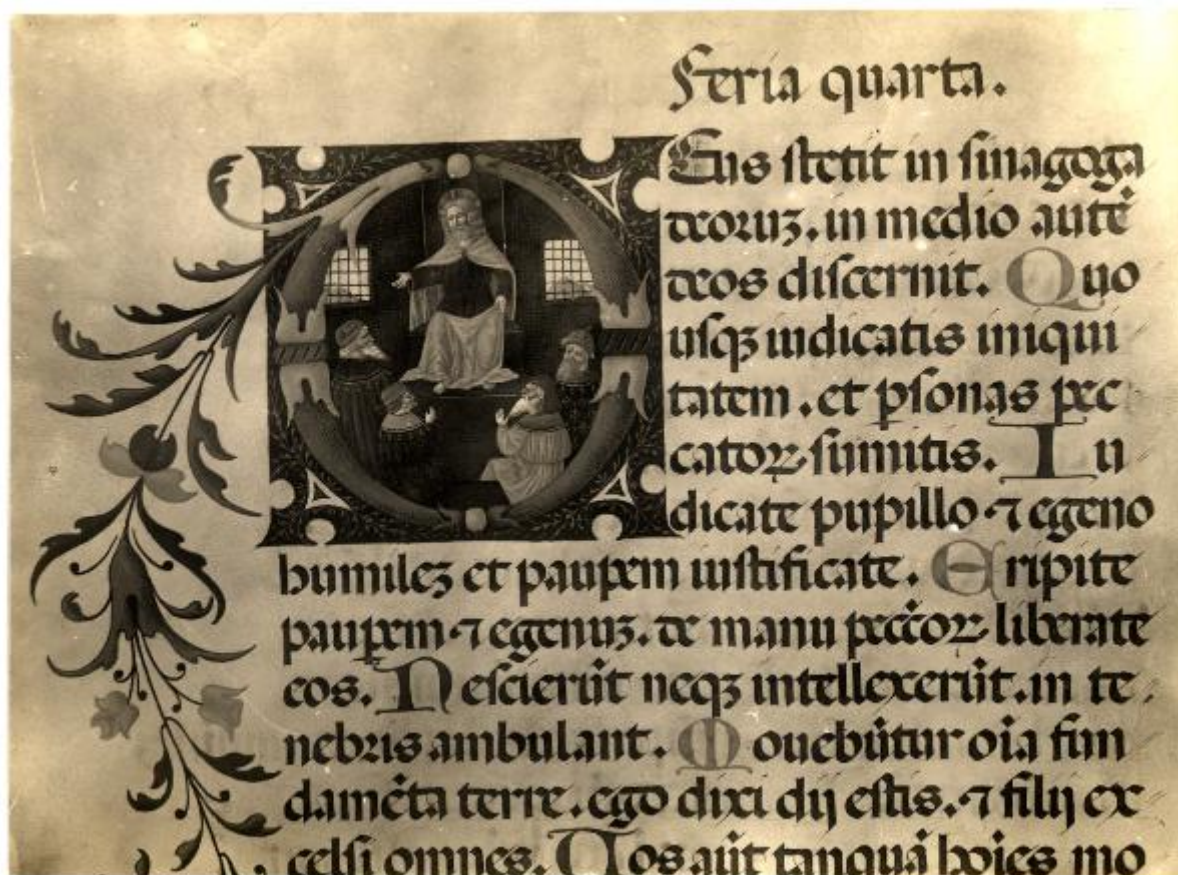 Feria quarta.
Eus stetit in sinagoga
deoruʒ. in medio autē
deos discernit. Quo
usqʒ iudicatis iniqui
tatem. et ꝑsonas pec
catoꝝ sumitis. Iu
dicate pupillo ⁊ egeno
humileʒ et pauꝑem iustificate. Eripite
pauꝑem ⁊ egenuʒ. de manu pccōꝝ liberate
eos. Nescierūt neqʒ intellexerūt. in te
nebris ambulant. Mouebūtur oīa fun
damēta terre. ego dixi dij estis. ⁊ filij ex
celsi omnes. Uos aūt tanquā hoīes mo